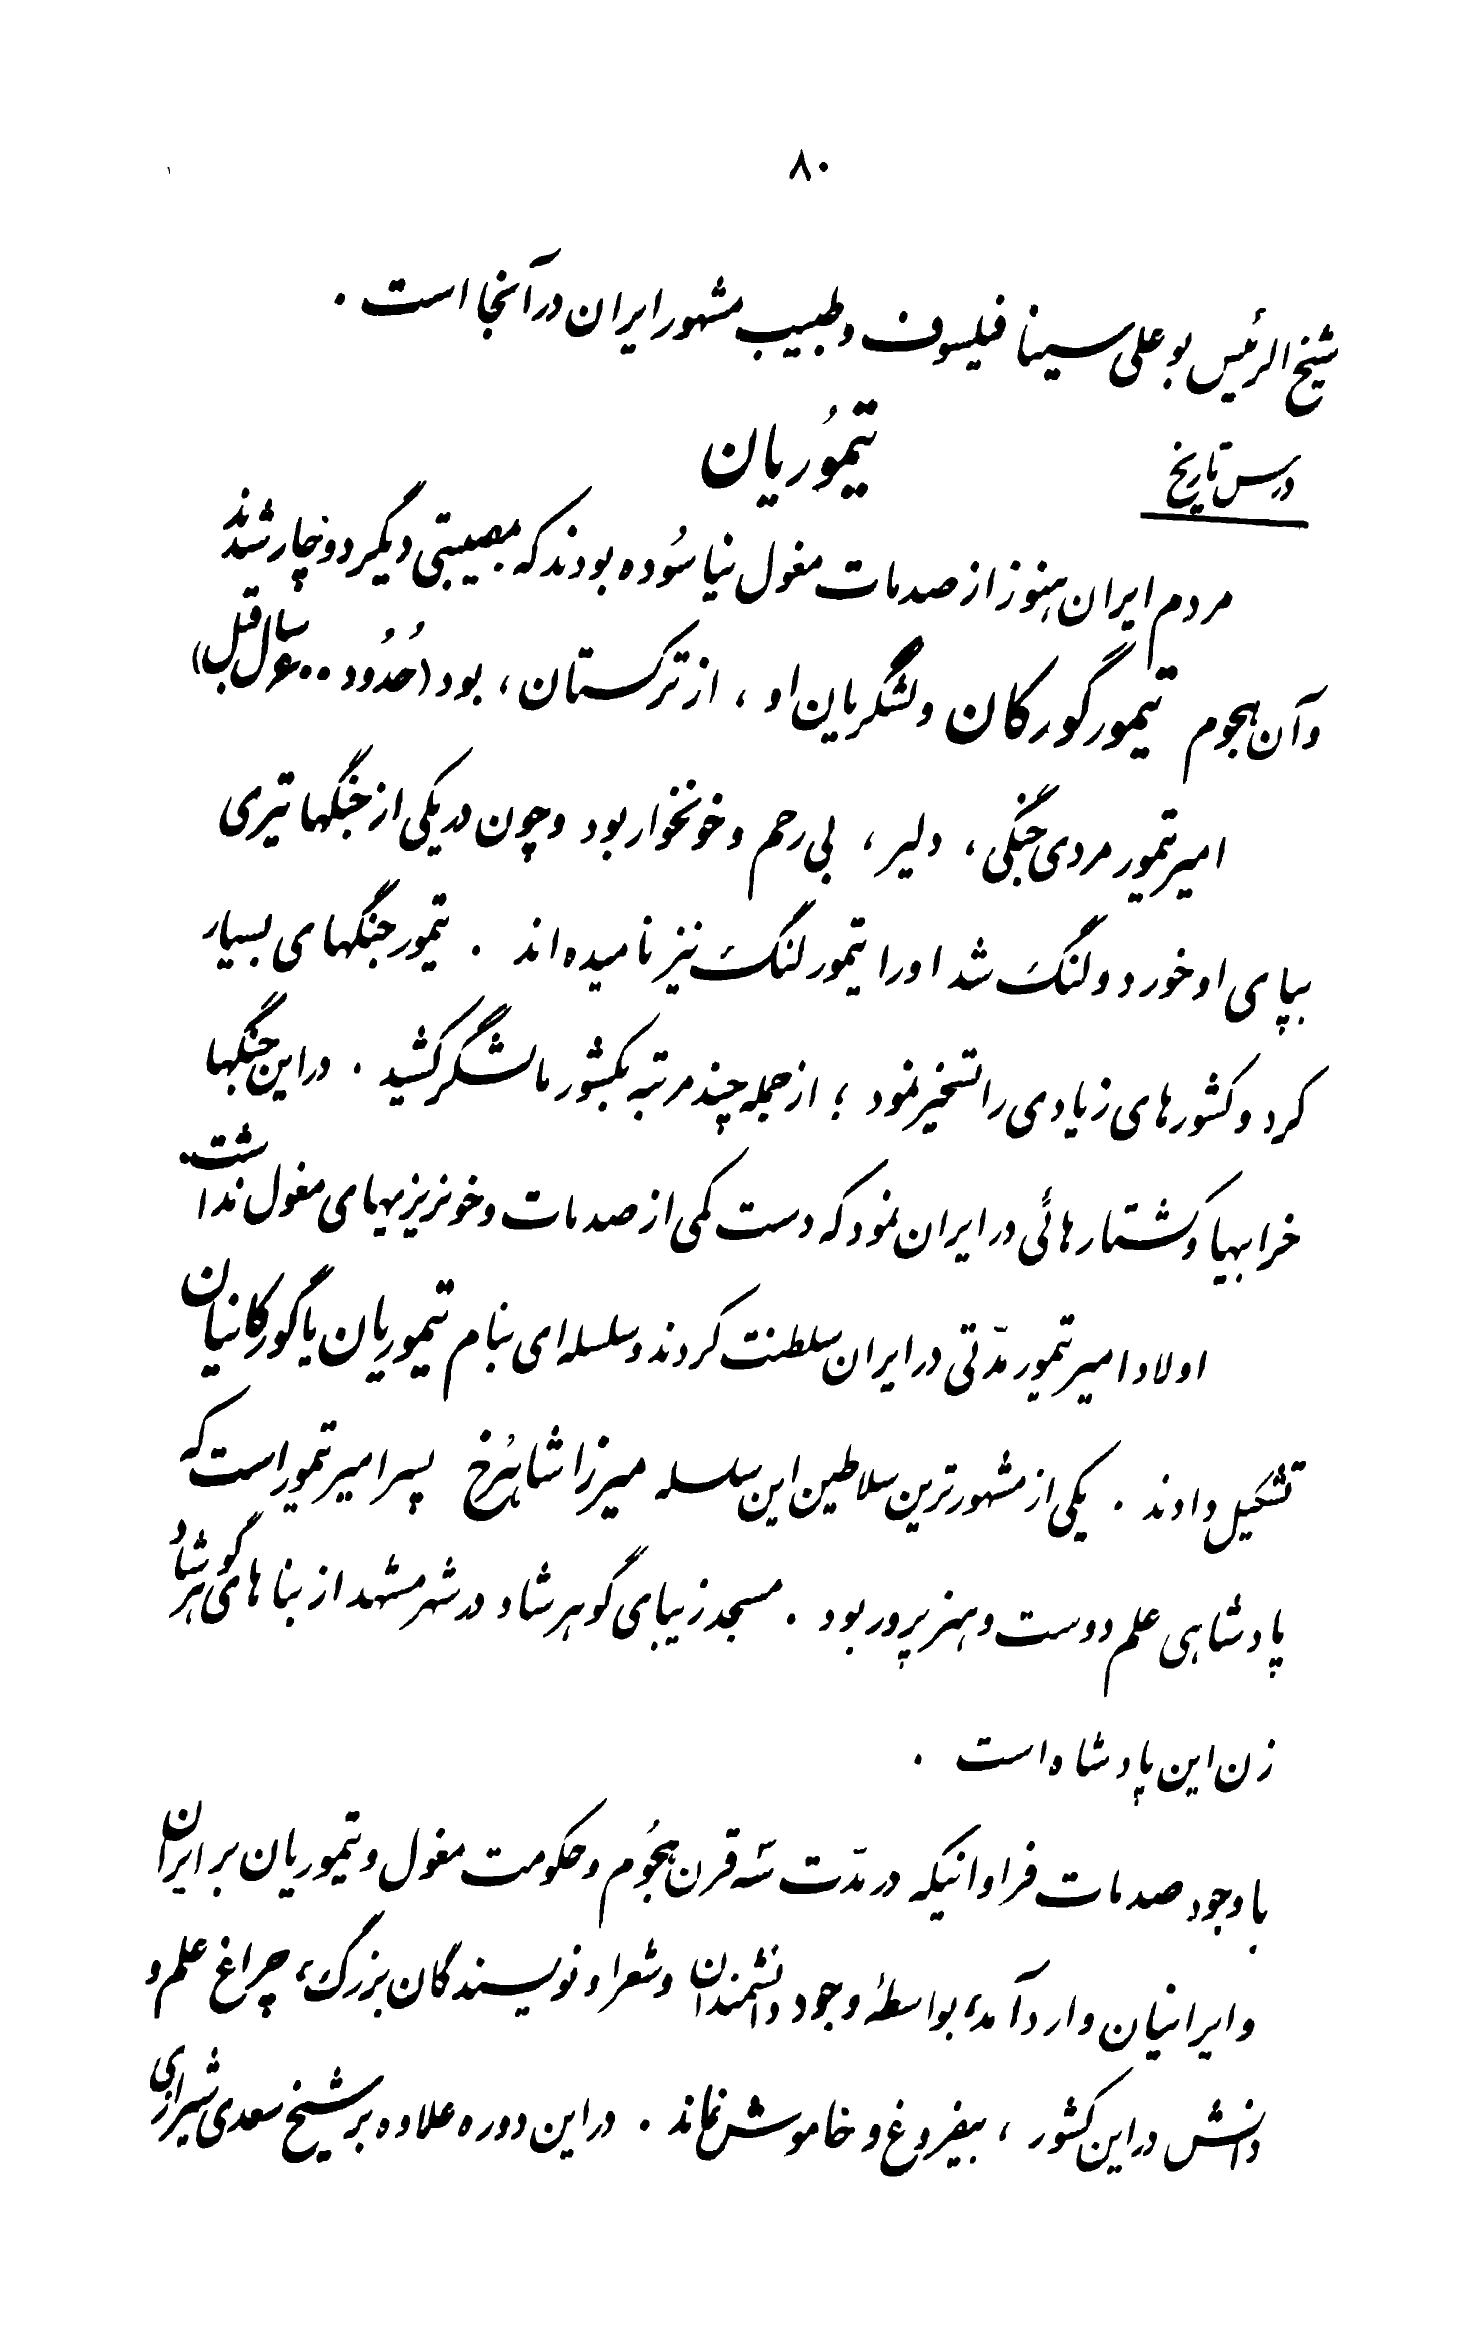 ۸۰
شیخ الرئیس بوعلی سینا فیلسوف و طبیب مشهور ایران در آنجا است .
تیمُوریان
درس تاریخ
مردم ایران هنوز از صدمات مغول نیاسُوده بودند که بمصیبتی دیگر دوچار شدند
و آن هجوم تیمور گورکان و لشگریان او ، از ترکستان ، بود (حُدُود ۶۰۰ سال قبل)
امیر تیمور مردی جنگی ، دلیر ، بی رحم و خونخوار بود و چون در یکی از جنگها تیری
بپای او خورد و لنگ شد او را تیمور لنگ نیز نامیده اند . تیمور جنگهای بسیار
کرد و کشورهای زیادی را تسخیر نمود ؛ از جمله چند مرتبه بکشور ما لشگر کشید . در این جنگها
خرابیها و کشتارهائی در ایران نمود که دست کمی از صدمات و خونریزیهای مغول نداشت.
اولاد امیر تیمور مدّتی در ایران سلطنت کردند و سلسله ای بنام تیموریان یا گورکانیان
تشکیل دادند . یکی از مشهورترین سلاطین این سلسله میرزا شاهرُخ پسر امیر تیمور است که
پادشاهی علم دوست و هنرپرور بود . مسجد زیبای گوهرشاد در شهر مشهد از بناهای گوهرشاد
زن این پادشاه است .
با وجود صدمات فراوانیکه در مدّت سه قرن هجُوم و حکومت مغول و تیموریان بر ایران
و ایرانیان وارد آمد، بواسطهٔ وجود دانشمندان و شعرا و نویسندگان بزرگ، چراغ علم و
دانش در این کشور ، بیفروغ و خاموش نماند . در این دوره علاوه بر شیخ سعدی شیرازی